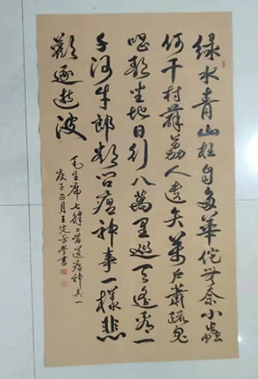 绿水青山枉自多華佗無奈小蟲
何千村薜荔人遗矢萬户蕭疏鬼
唱歌坐地日行八萬里巡天遥看一
千河牛郎欲问瘟神事一樣悲
歡逐逝波
毛主席七律二首送瘟神其一
庚子正月王書